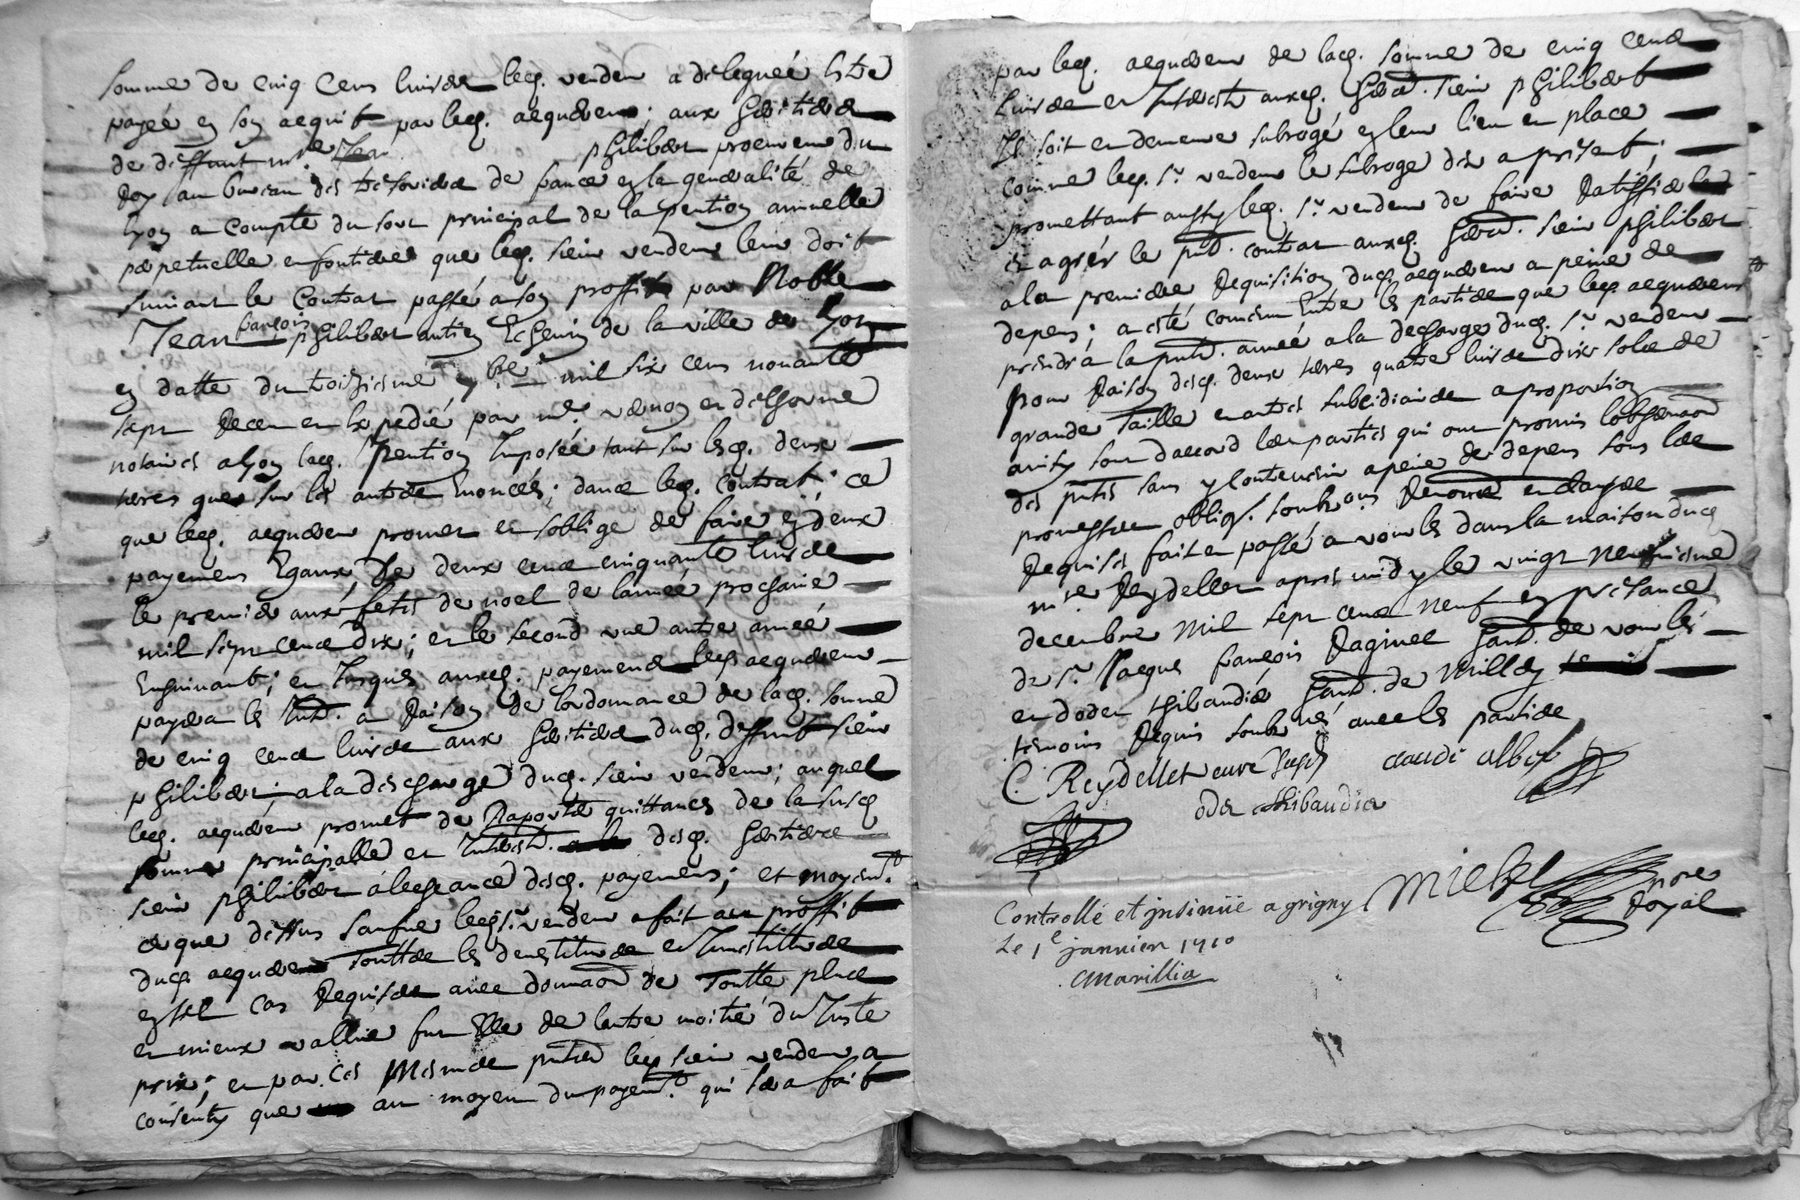 somme de cinq cens livres led. vendeur a deleguée estre
payée en son acquit par led. acquereur; aux heritiers
de deffunt mre Jean philibert procureur du
Roy au bureau des tresoriers de france en la generalité de
lyon a compte du sort principal de la pention annuelle
perpetuelle et fontiere que led. sieur vendeur leur doit
suivant le contrat passé a son proffit par Noble
Jean françois philibert antien Eschevin de la ville de lyon
en datte du troizieme 7bre mil six cens nonante
sept Receu et Expedié par mes. vernon et delhorme
notaires a lyon lad. Pention Imposée tant sur lesd. deux
terres que sur les autres enoncés; dans led. contrat; ce
que led. acquereur promet et soblige de faire en deux
payemens Egaux, de deux cens cinquante livres
le premier aux festes de noel de lannée prochaine
mil sept cens dix; et le second une autre année
Ensuivant; et Jusques auxd. payemens led. acquereur
payera les Intr. a Raison de lordonnance de lad. somme
de cinq cens livres aux heritiers dud. deffunt sieur
philibert; a la descharge dud. sieur vendeur; auquel
led. acquereur promet de Raporter quittances de la susd
somme principalle et Interest. desd. heritiers
sieur philibert a lecheance desd. payemens; et moyent.
ce que dessus led. sr. vendeur a fait au proffit
dud. acquereur touttes les devestitures et Investitures
en tel cas Requises avec donnaon de toutte place
et mieux vallue fut Elle de lautre moitié du Juste
prix; et par ces Mesmes pntes led sieur vendeur a
consenty que au moyen du payemt. qui sera fait
par led. acquereur de lad. somme de cinq cens
livres et Interests auxd. hers. sieur philibert
Il soit et demeure subrogé en leur lieu et place
comme led. sr. vendeur le subroge des a present;
promettant aussy led. sr. vendeur de faire Ratiffier
et agréer le pnt. contrat auxd. hers. sieur philibert
a la premiere Requisition dud. acquereur a peine de
depens; a esté convenu Entre les parties que led. acquereur
prendra la pnte. année a la descharge dud. sr. vendeur
pour Raison desd. deux terres quatre livres dix sols de
grande taille et autres subcidiaires a proportion
ainsy sont daccord les parties qui ont promis lobservaon
des pntes sans y contrevenir a peine de depens sous les
promesses obligs. soubons Renonces et clauses
Requises fait et passé a vourles dans la maison dud
mre Reydellet apres midy le vingt neufvieme
decembre mil sept cens neuf en presance
de sr. Jacques françois Raginel hant. de vourles
et doder thibaudier hant. de Millery
temoins Requis soubsnés avec les parties
C. Reydellet curé claude albef
oder thibaudier
Michel nore
Royal
Controllé et jnsinüé a grigny
Le 1e janvier 1710
Marillia